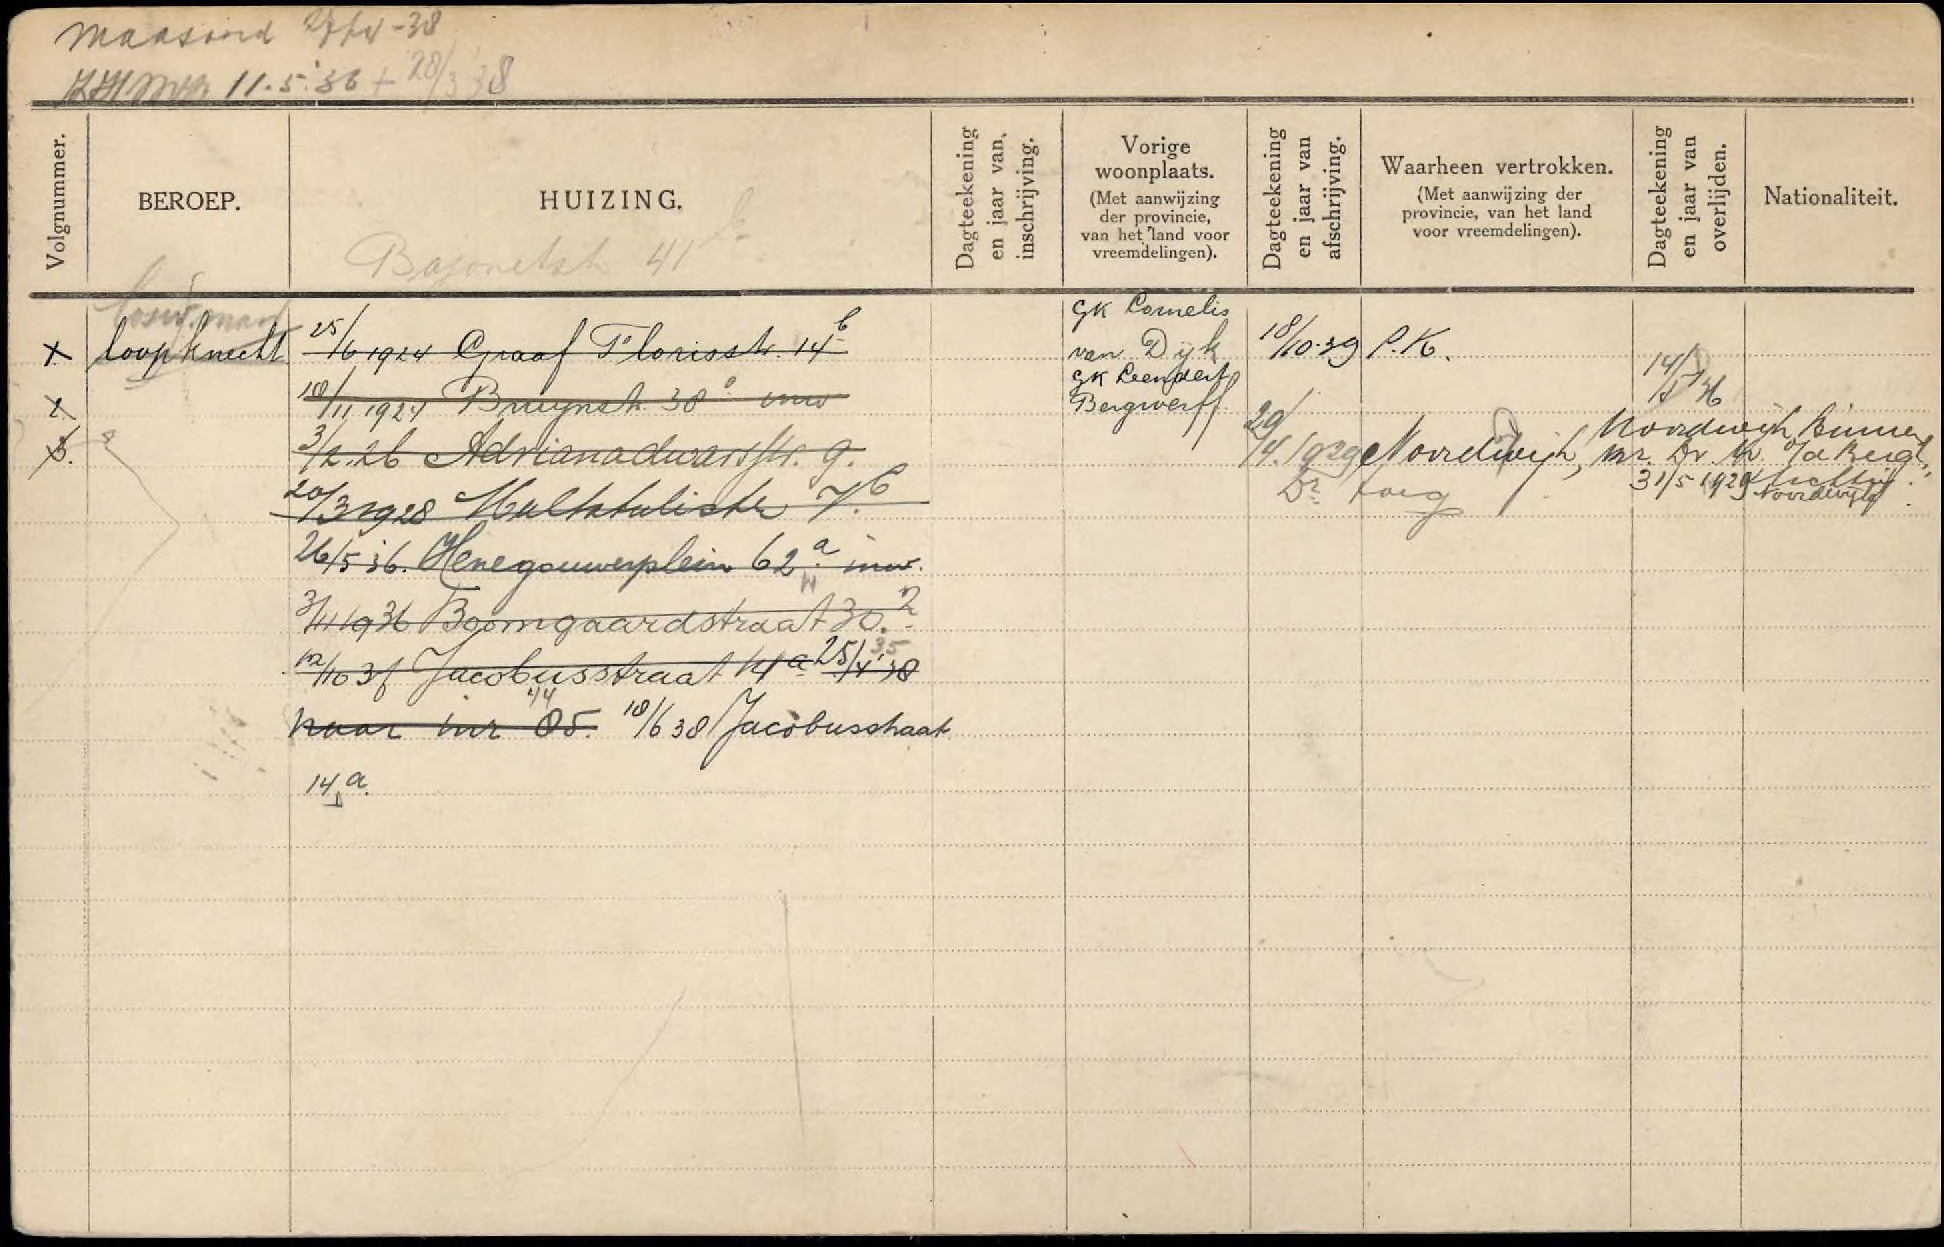 Maasoord 27/4-38
11.5.'36 + 28/3 38
Volgnummer.
BEROEP.
HUIZING.
Bajonetstr 41 b
Dagteekening en jaar van inschrijving.
Vorige woonplaats.
(Met aanwijzing der provincie, van het land voor vreemdelingen).
Dagteekening en jaar van afschrijving.
Waarheen vertrokken.
(Met aanwijzing der provincie, van het land voor vreemdelingen).
Dagteekening en jaar van overlijden.
Nationaliteit.
1 loopknecht 25/6 1924 Graaf Florisstr. 14 b
GK Cornelis van Dijk
18/10-39 P.K.
14/5 36
2 18/11 1924 Bruynstr. 38 inw
GK Leendert Bergwerff
3. 3/2.26 Adrianadwarsstr. 9.
29/4.1929 Noordwijk,
Noordwijk Binnen
31/5 1929
Noordwijk
20/3 1928 Multatulistr 7 b
26/5 '36. Henegouwerplein 62 a inw.
3/11 1936 Boomgaardstraat 30.
12/10 37 Jacobusstraat 14 a 25/4 '38
naar inr 85. 18/6 38 Jacobusstraat
14 a.